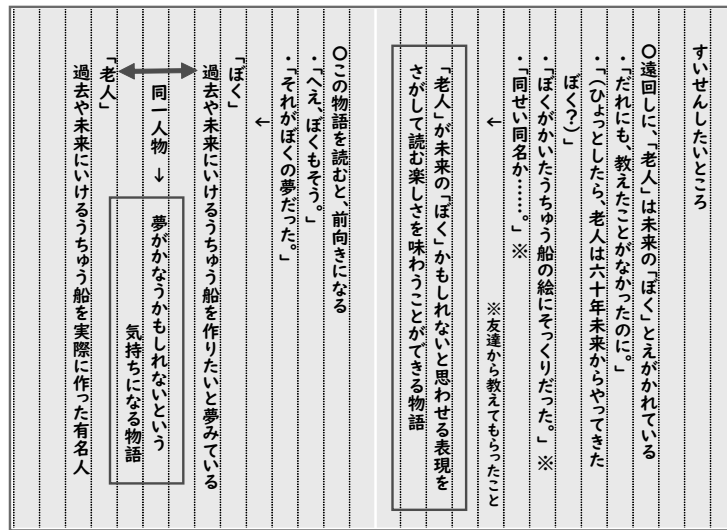 すいせんしたいところ
〇遠回しに、「老人」は未来の「ぼく」とえがかれている
・「だれにも、教えたことがなかったのに。」
・「(ひょっとしたら、老人は六十年未来からやってきた
ぼく?)」
・「ぼくがかいたうちゅう船の絵にそっくりだった。」※
・「同せい同名か……。」※
←
※友達から教えてもらったこと
「老人」が未来の「ぼく」かもしれないと思わせる表現を
さがして読む楽しさを味わうことができる物語
〇この物語を読むと、前向きになる
・「へえ、ぼくもそう。」
・「それがぼくの夢だった。」
←
「ぼく」
過去や未来にいけるうちゅう船を作りたいと夢みている
同一人物 →
夢がかなうかもしれないという
気持ちになる物語
「老人」
過去や未来にいけるうちゅう船を実際に作った有名人